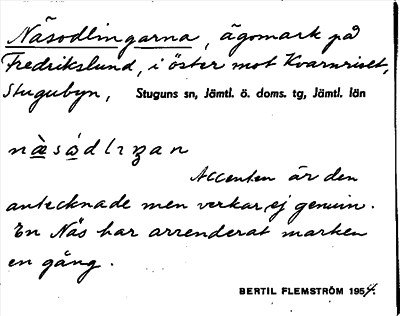 Näsodlingarna, ägomark på
Fredrikslund, i öster mot Kvarnriset,
Stugubyn, Stuguns sn, Jämtl. ö. doms. tg, Jämtl. län
Accenten är den
antecknade men verkar ej genuin.
En Näs har arrenderat marken
en gång.
BERTIL FLEMSTRÖM 1954.